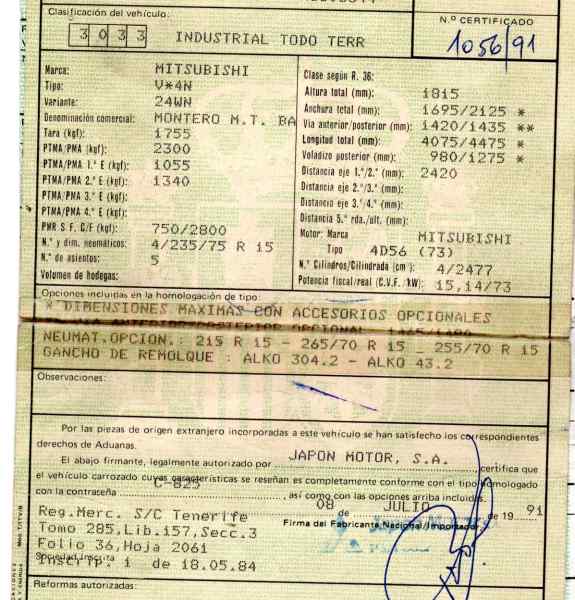 Clasificación del vehículo:
3033
INDUSTRIAL TODO TERR
N.º CERTIFICADO
1056/91
Marca: MITSUBISHI
Tipo: V*4N
Variante: 24WN
Denominación comercial: MONTERO M.T. BA
Tara (kgf): 1755
PTMA/PMA (kgf): 2300
PTMA/PMA 1.º E (kgf): 1055
PTMA/PMA 2.º E (kgf): 1340
PTMA/PMA 3.º E (kgf):
PTMA/PMA 4.º E (kgf):
PMR S. F. C/F (kgf): 750/2800
N.º y dim. neumáticos: 4/235/75 R 15
N.º de asientos: 5
Volumen de bodegas:
Clase según R. 36:
Altura total (mm): 1815
Anchura total (mm): 1695/2125 *
Vía anterior/posterior (mm): 1420/1435 **
Longitud total (mm): 4075/4475 *
Voladizo posterior (mm): 980/1275 *
Distancia eje 1.º/2.º (mm): 2420
Distancia eje 2.º/3.º (mm):
Distancia eje 3.º/4.º (mm):
Distancia 5.ª rda./últ. (mm):
Motor: Marca MITSUBISHI
Tipo 4D56 (73)
N.º Cilindros/Cilindrada (cm³): 4/2477
Potencia fiscal/real (C.V.F./kW): 15,14/73
Opciones incluidas en la homologación de tipo:
* DIMENSIONES MAXIMAS CON ACCESORIOS OPCIONALES
VIA ANTERIOR/POSTERIOR OPCIONAL
NEUMAT.OPCION.: 215 R 15 - 265/70 R 15 - 255/70 R 15
GANCHO DE REMOLQUE : ALKO 304.2 - ALKO 43.2
Observaciones:
Por las piezas de origen extranjero incorporadas a este vehículo se han satisfecho los correspondientes
derechos de Aduanas.
El abajo firmante, legalmente autorizado por JAPON MOTOR, S.A. certifica que
el vehículo carrozado cuyas características se reseñan es completamente conforme con el tipo homologado
con la contraseña C-825, así como con las opciones arriba incluidas.
08 de JULIO de 19 91
Reg.Merc. S/C Tenerife
Firma del Fabricante Nacional/Importador
Tomo 285,Lib.157,Secc.3
Folio 36,Hoja 2061
Sociedad inscrita
Inscrip. 1 de 18.05.84
Reformas autorizadas: